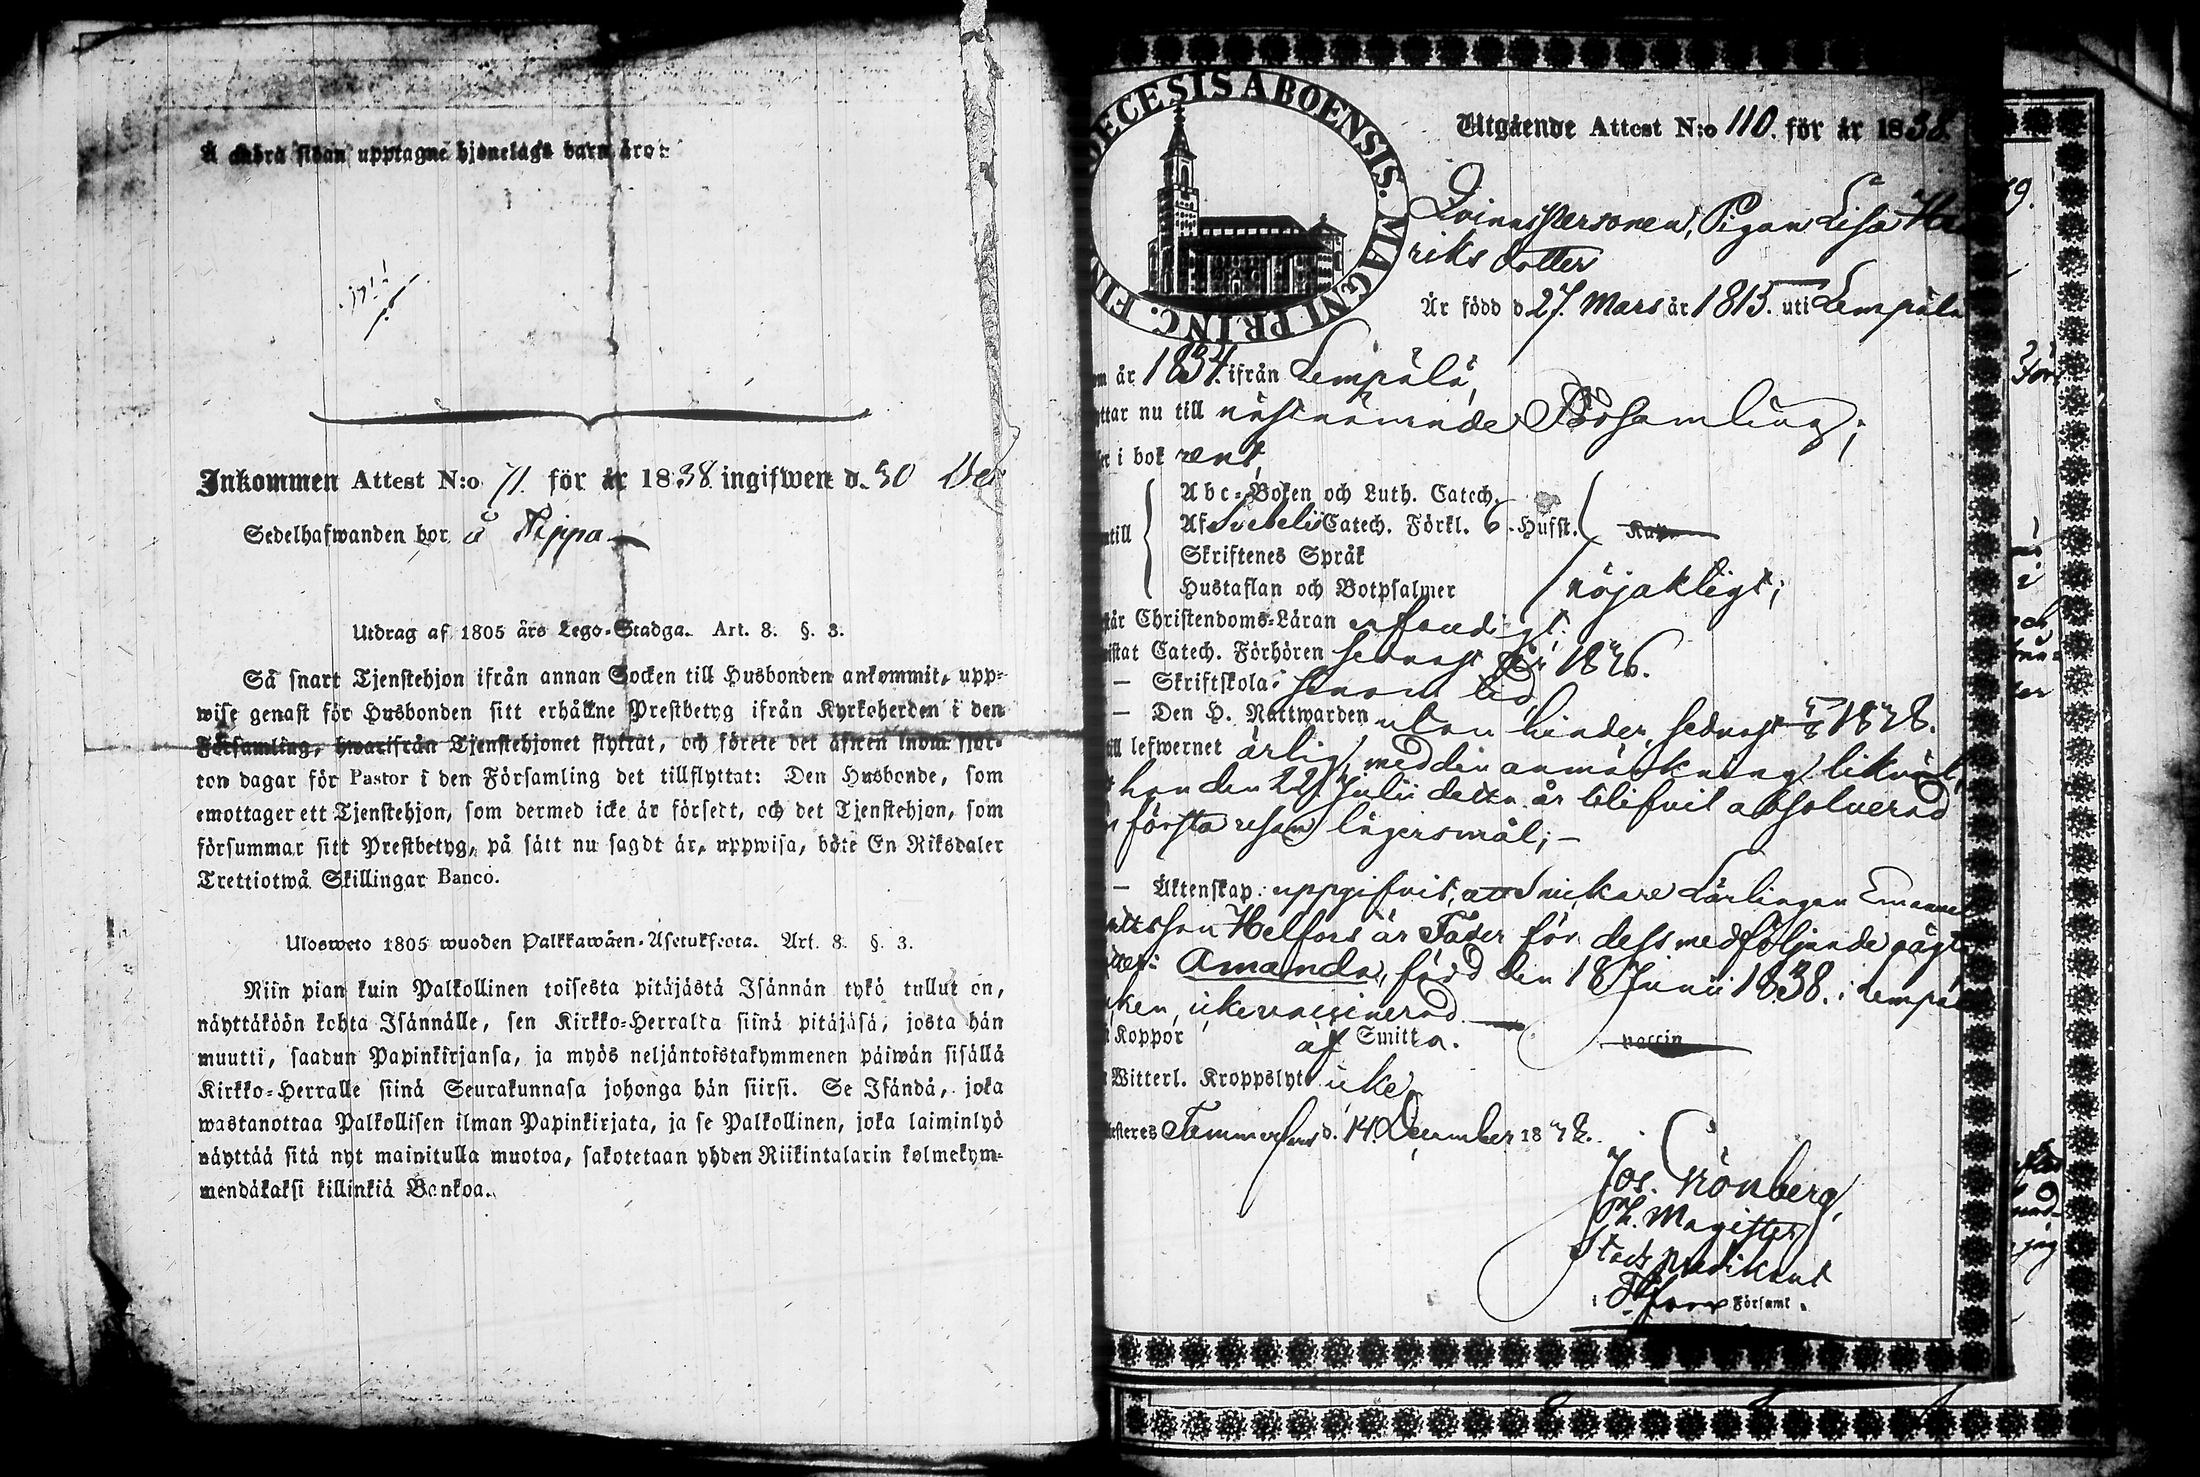 Å andra sidan upptagne hjonelags barn äro:
Inkommen Attest N:o 71. för år 1838 ingifwen d. 30 Dec
Sedelhafwanden bor å Nippa
Utdrag af 1805 års Lego-Stadga. Art. 8. §. 3.
Så snart Tjenstehjon ifrån annan Socken till Husbonden ankommit, upp-
wise genast för Husbonden sitt erhållne Prestbetyg ifrån Kyrkoherden i den
Församling, hwarifrån Tjenstehjonet flyttat, och förete det äfwen inom fjor-
ton dagar för Pastor i den Församling det tillflyttat: Den Husbonde, som
emottager ett Tjenstehjon, som dermed icke är försedt, och det Tjenstehjon, som
försummar sitt Prestbetyg, på sätt nu sagdt är, uppwisa, böte En Riksdaler
Trettiotwå Skillingar Banco.
Ulosweto 1805 wuoden Palkkawäen-Asetuksesta. Art. 8. §. 3.
Niin pian kuin Palkollinen toisesta pitäjästä Isännän tykö tullut on,
näyttäköön kohta Isännälle, sen Kirkko-Herralda siinä pitäjäsä, josta hän
muutti, saadun Papinkirjansa, ja myös neljäntoistakymmenen päiwän sisällä
Kirkko-Herralle siinä Seurakunnasa johonga hän siirsi. Se Isändä, joka
wastanottaa Palkollisen ilman Papinkirjata, ja se Palkollinen, joka laiminlyö
näyttää sitä nyt mainitulla muotoa, sakotetaan yhden Riikintalarin kolmekym-
mendäkaksi killinkiä Bankoa.
DECESIS ABOENSIS. MAGNI PRINC. FIN
Utgående Attest N:o 110. för år 1838.
Qvinnspersonen, Pigan Lisa Hen
riks dotter
Är född d 27. Mars år 1815. uti Lempälä
om år 1834. ifrån Lempälä,
yttar nu till nästnämnde Församling;
er i bok rent
Abc-Boken och Luth. Catech.
Af Svebelii Catech. Förkl. 6. Hufst.
ntill
Skriftenes Språk
Hustaflan och Botpsalmer nöjaktligt;
tår Christendoms-Läran
istat Catech. Förhören sednast år 1836.
— Skriftskola
— Den H. Nattwarden utan hinder, sednast 1838.
ill lefwernet ärlig, med den anmärkning likväl,
hon den 22 Julii detta år blifvit absolverad
första resan lägersmål; —
— Äktenskap. uppgifvit, att Snickare Lärlingen Emanuel
Helfors är Fader för dess medföljande oägt
Amanda, född den 18 Junii 1838. i Lempä
ken, icke vaccinerad
Koppor af Smitta. vaccin
Witterl. Kroppslyte icke
esteres Tammerfors d. 14 December 1838.
Jos. Grönberg,
Ph. Magister
Stads predikant
i T:fors Församl.